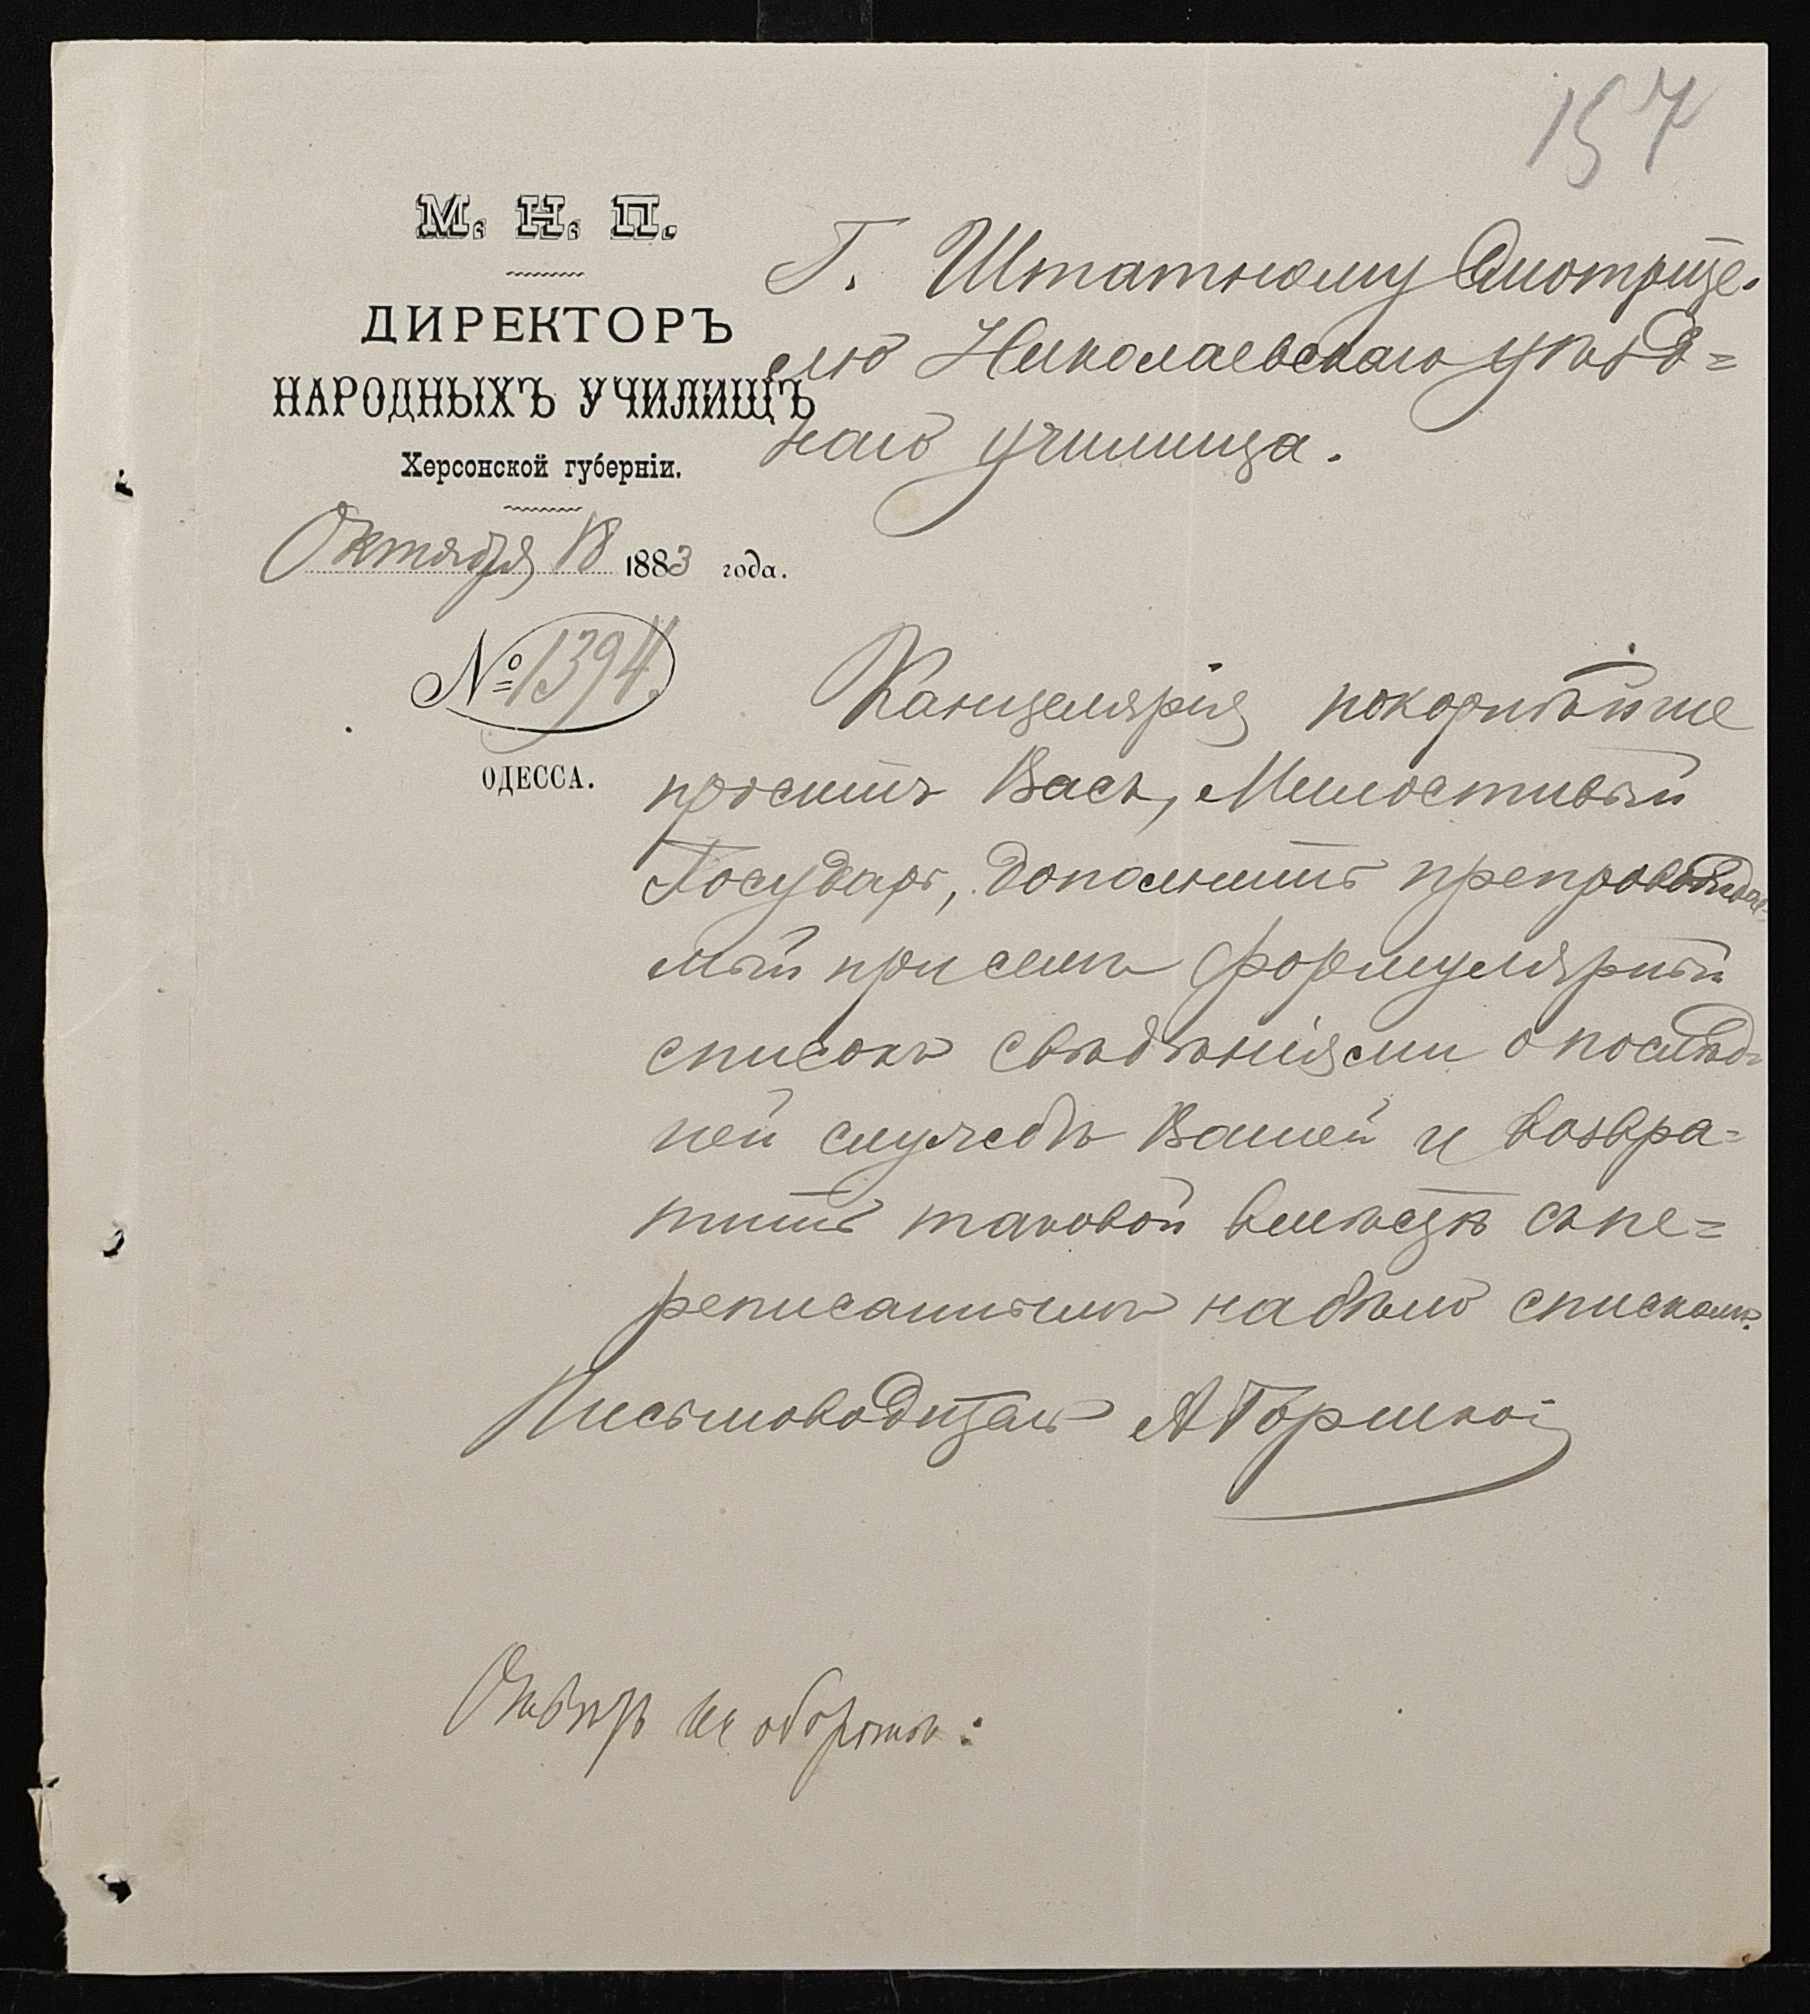 157
М. Н. П.
ДИРЕКТОРЪ
НАРОДНЫХЪ УЧИЛИЩЪ
Херсонской губерніи.
Октября 18 1883 года.
№ 1394.
ОДЕССА.
Г. Штатному Смотрите-
лю Николаевскаго уѣзд=
наго училища.
Канцелярія покорнѣйше
проситъ Васъ, Милостивый
Государь, дополнить препровождае-
мый при семъ формулярный
списокъ свѣдѣніями о послѣд-
ней службѣ Вашей и возвра=
тить таковой вмѣстѣ съ пе=
реписаннымъ на бѣло спискомъ.
Письмоводитель А
на оборотѣ: